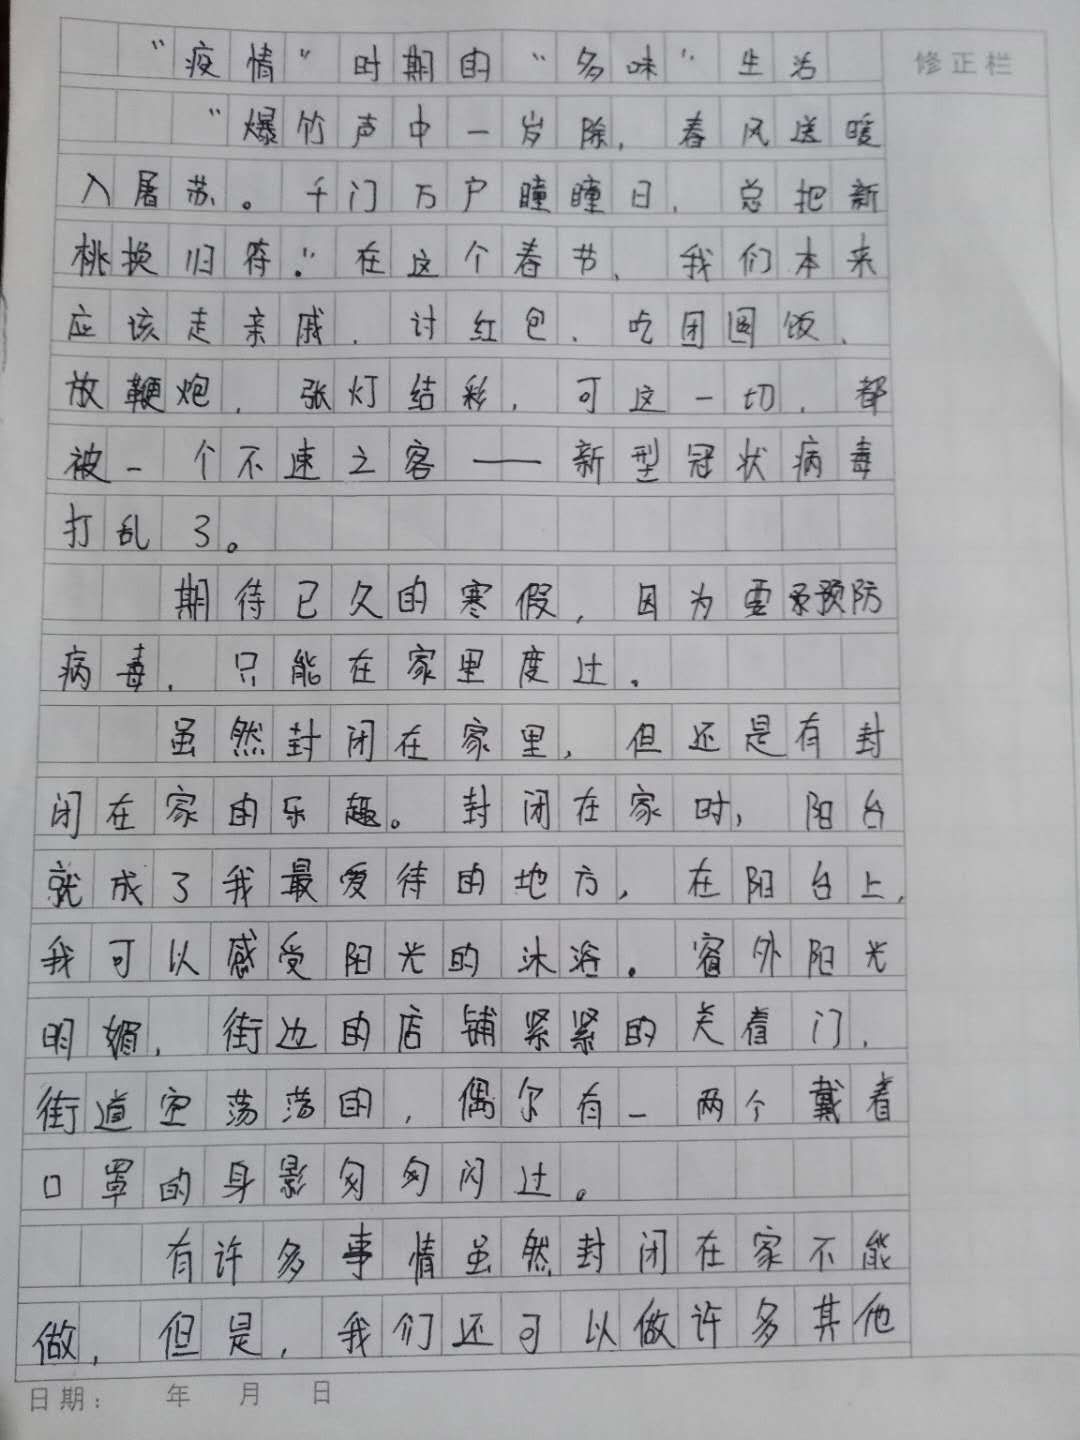 “疫情”时期的“多味”生活
修正栏
“爆竹声中一岁除,春风送暖
入屠苏。千门万户瞳瞳日,总把新
桃换旧符。”在这个春节,我们本来
应该走亲戚、讨红包、吃团圆饭、
放鞭炮,张灯结彩,可这一切,都
被一个不速之客——新型冠状病毒
打乱了。
期待已久的寒假,因为要预防
病毒,只能在家里度过。
虽然封闭在家里,但还是有封
闭在家的乐趣。封闭在家时,阳台
就成了我最爱待的地方,在阳台上,
我可以感受阳光的沐浴。窗外阳光
明媚,街边的店铺紧紧的关着门,
街道空荡荡的,偶尔有一两个戴着
口罩的身影匆匆闪过。
有许多事情虽然封闭在家不能
做,但是,我们还可以做许多其他
日期: 年 月 日